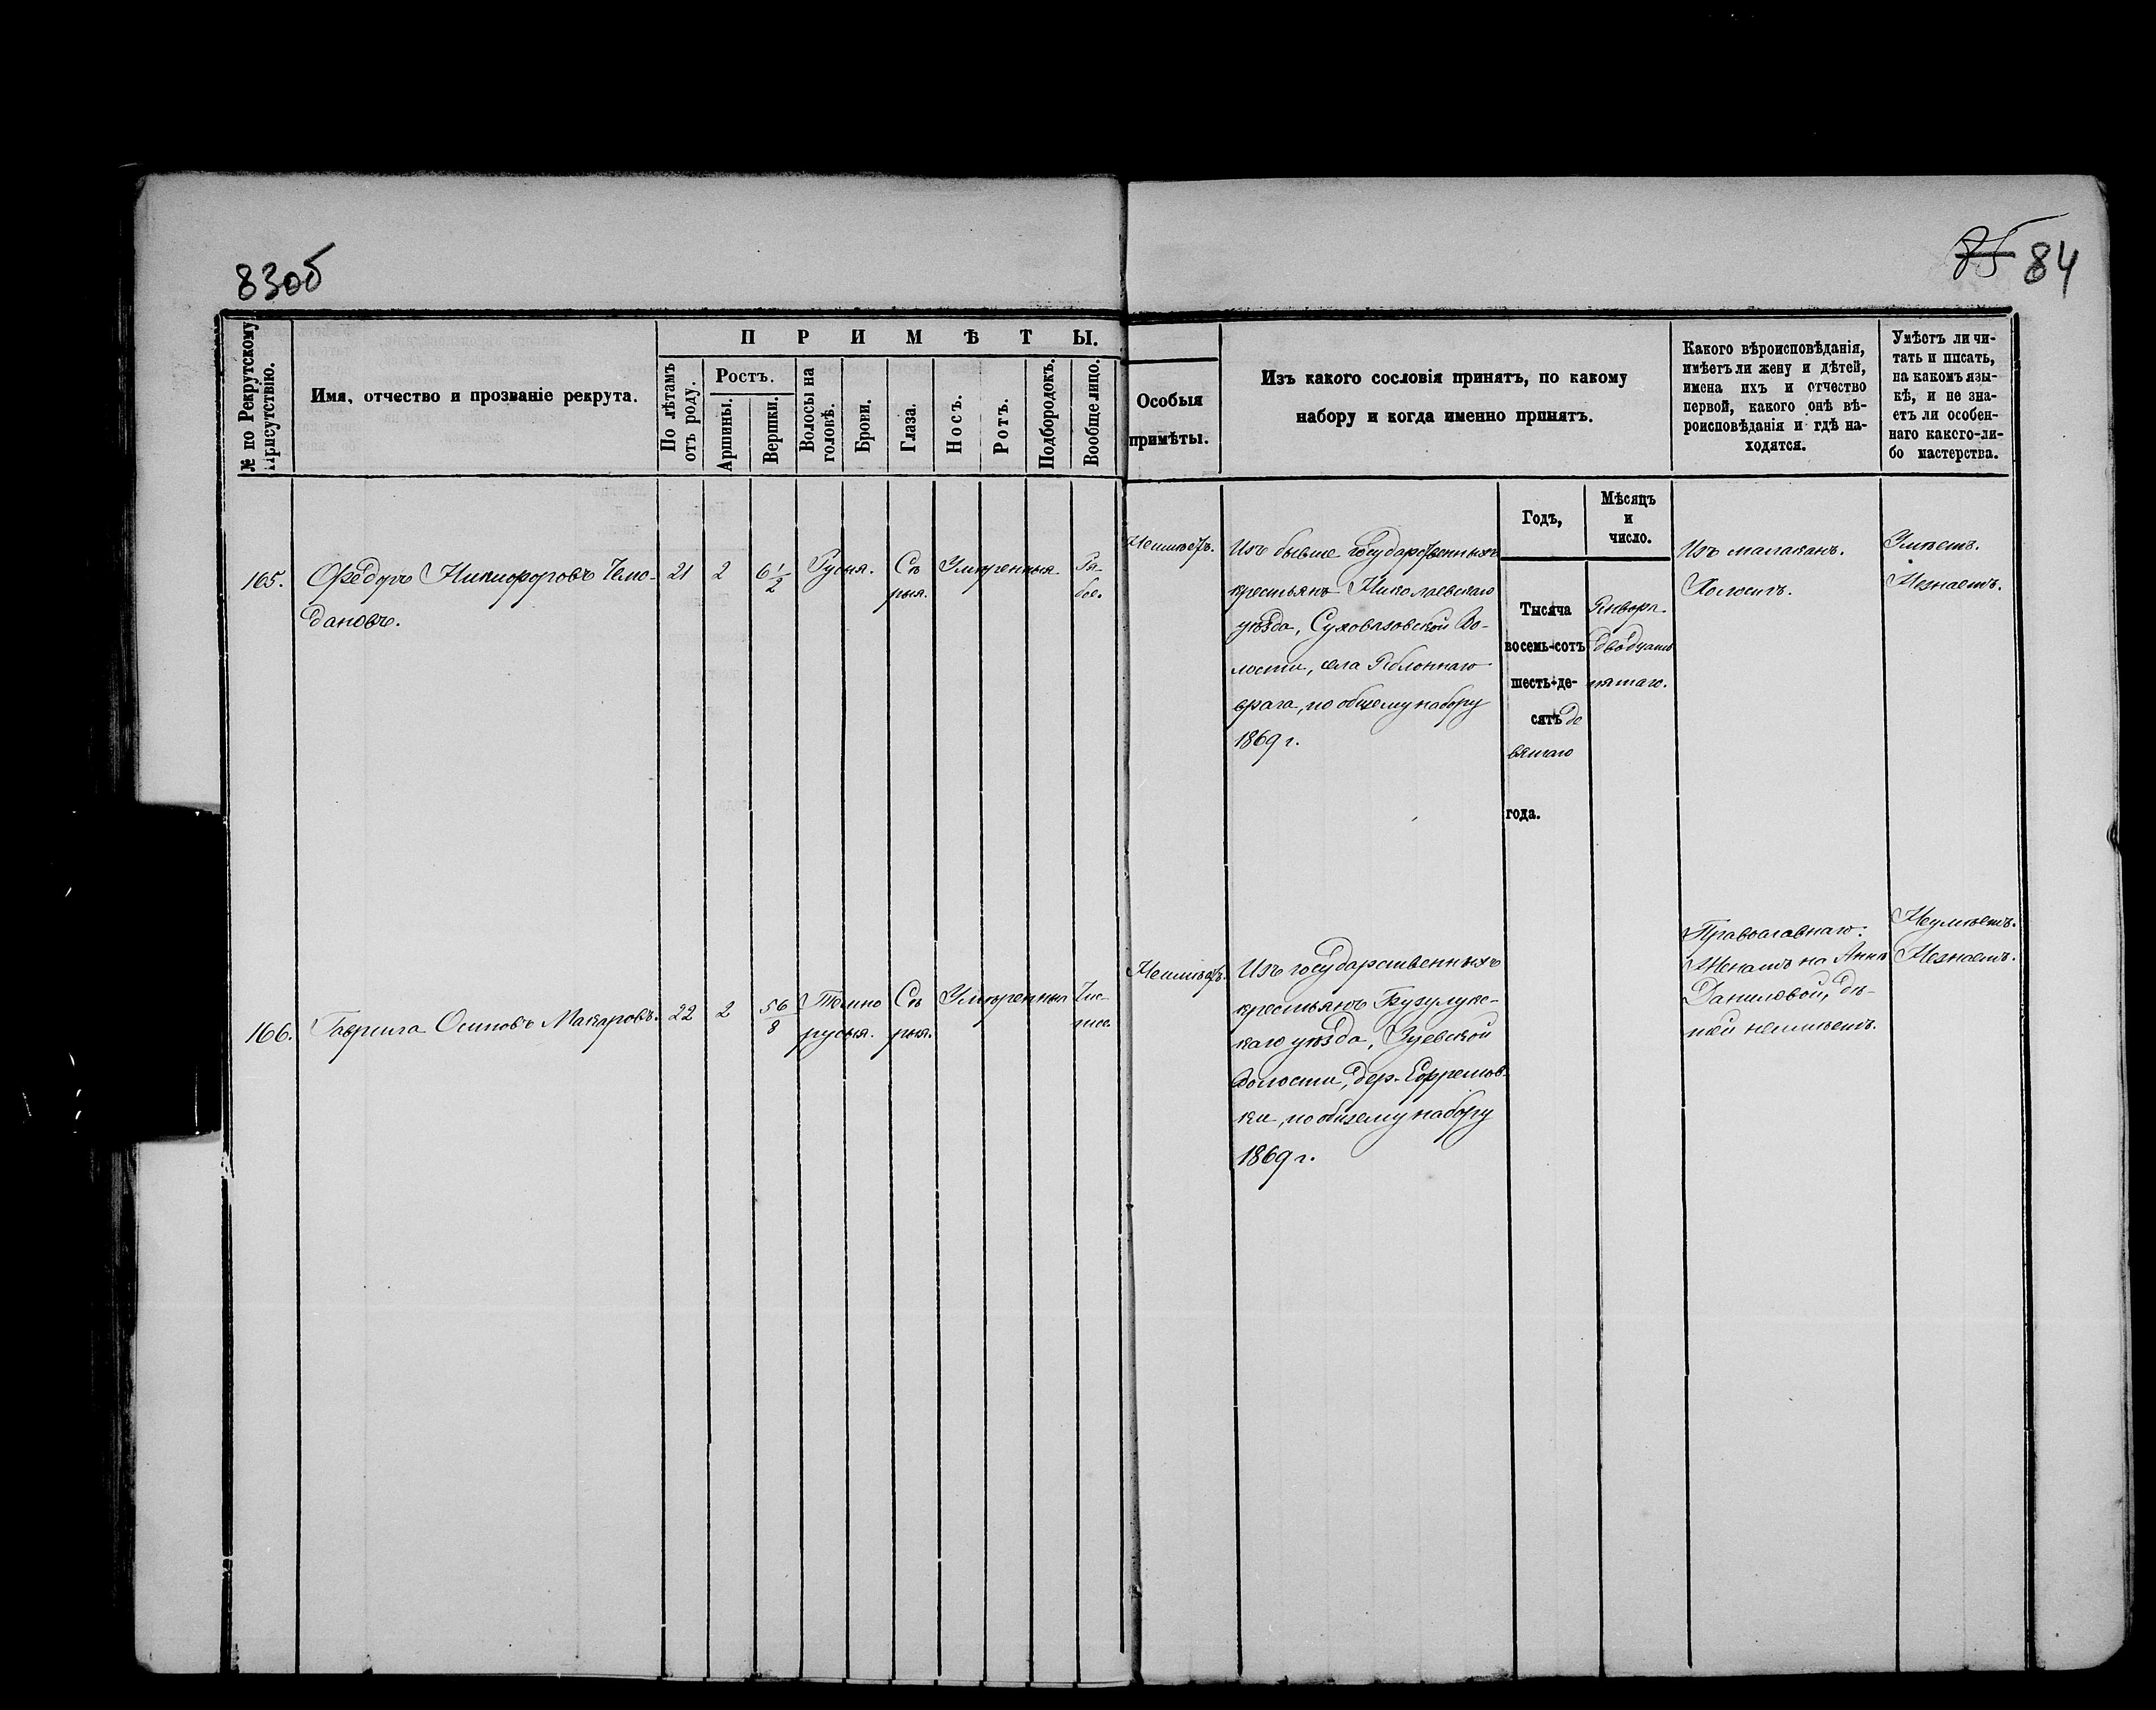 83об
85 84
№ по Рекрутскому Присутствію.
Имя, отчество и прозваніе рекрута.
ПРИМѢТЫ.
По лѣтамъ отъ роду.
Ростъ.
Аршины.
Вершки.
Волосы на головѣ.
Брови.
Глаза.
Носъ.
Ротъ.
Подбородокъ.
Вообще лицо.
Особыя
примѣты.
Изъ какого сословія принятъ, по какому
набору и когда именно принятъ.
Какого вѣроисповѣданія,
имѣетъ ли жену и дѣтей,
имена ихъ и отчество
первой, какого онѣ вѣ-
роисповѣданія и гдѣ на-
ходятся.
Умѣетъ ли чи-
тать и писать,
на какомъ язы-
кѣ, и не зна-
етъ ли особен-
наго какого-ли-
бо мастерства.
Годъ,
Мѣсяцъ
и
число.
165.
Ѳедоръ Никифоровъ Чемо-
дановъ.
21
2
6 1/2
Русыя.
Сѣ
рыя.
Умѣренныя
Ря-
бое.
Неимѣетъ.
Изъ бывше государственныхъ
крестьянъ Николаевскаго
уѣзда, Сухово­зовской Во-
лости, села Яблоннаго
врага, по общему набору
1869 г.
Тысяча
восемь-сотъ
шесть-де-
сятъ де
вятаго
года.
Января
двадцать
пятаго.
Изъ малаканъ.
Холостъ.
Умѣетъ.
Незнаетъ.
166.
Гаврила Осиповъ Макаровъ.
22
2
5 6/8
Темно
русыя.
Сѣ
рыя.
Умѣренныя
Чис-
тое.
Неимѣетъ.
Изъ государственныхъ
крестьянъ Бузулукс-
каго уѣзда, Зуевской
Волости, дер. Ефремов-
ки, по общему набору
1869 г.
Православнаго.
Женатъ на Аннѣ
Даниловой, дѣ-
тей неимѣетъ.
Неумѣетъ.
Незнаетъ.